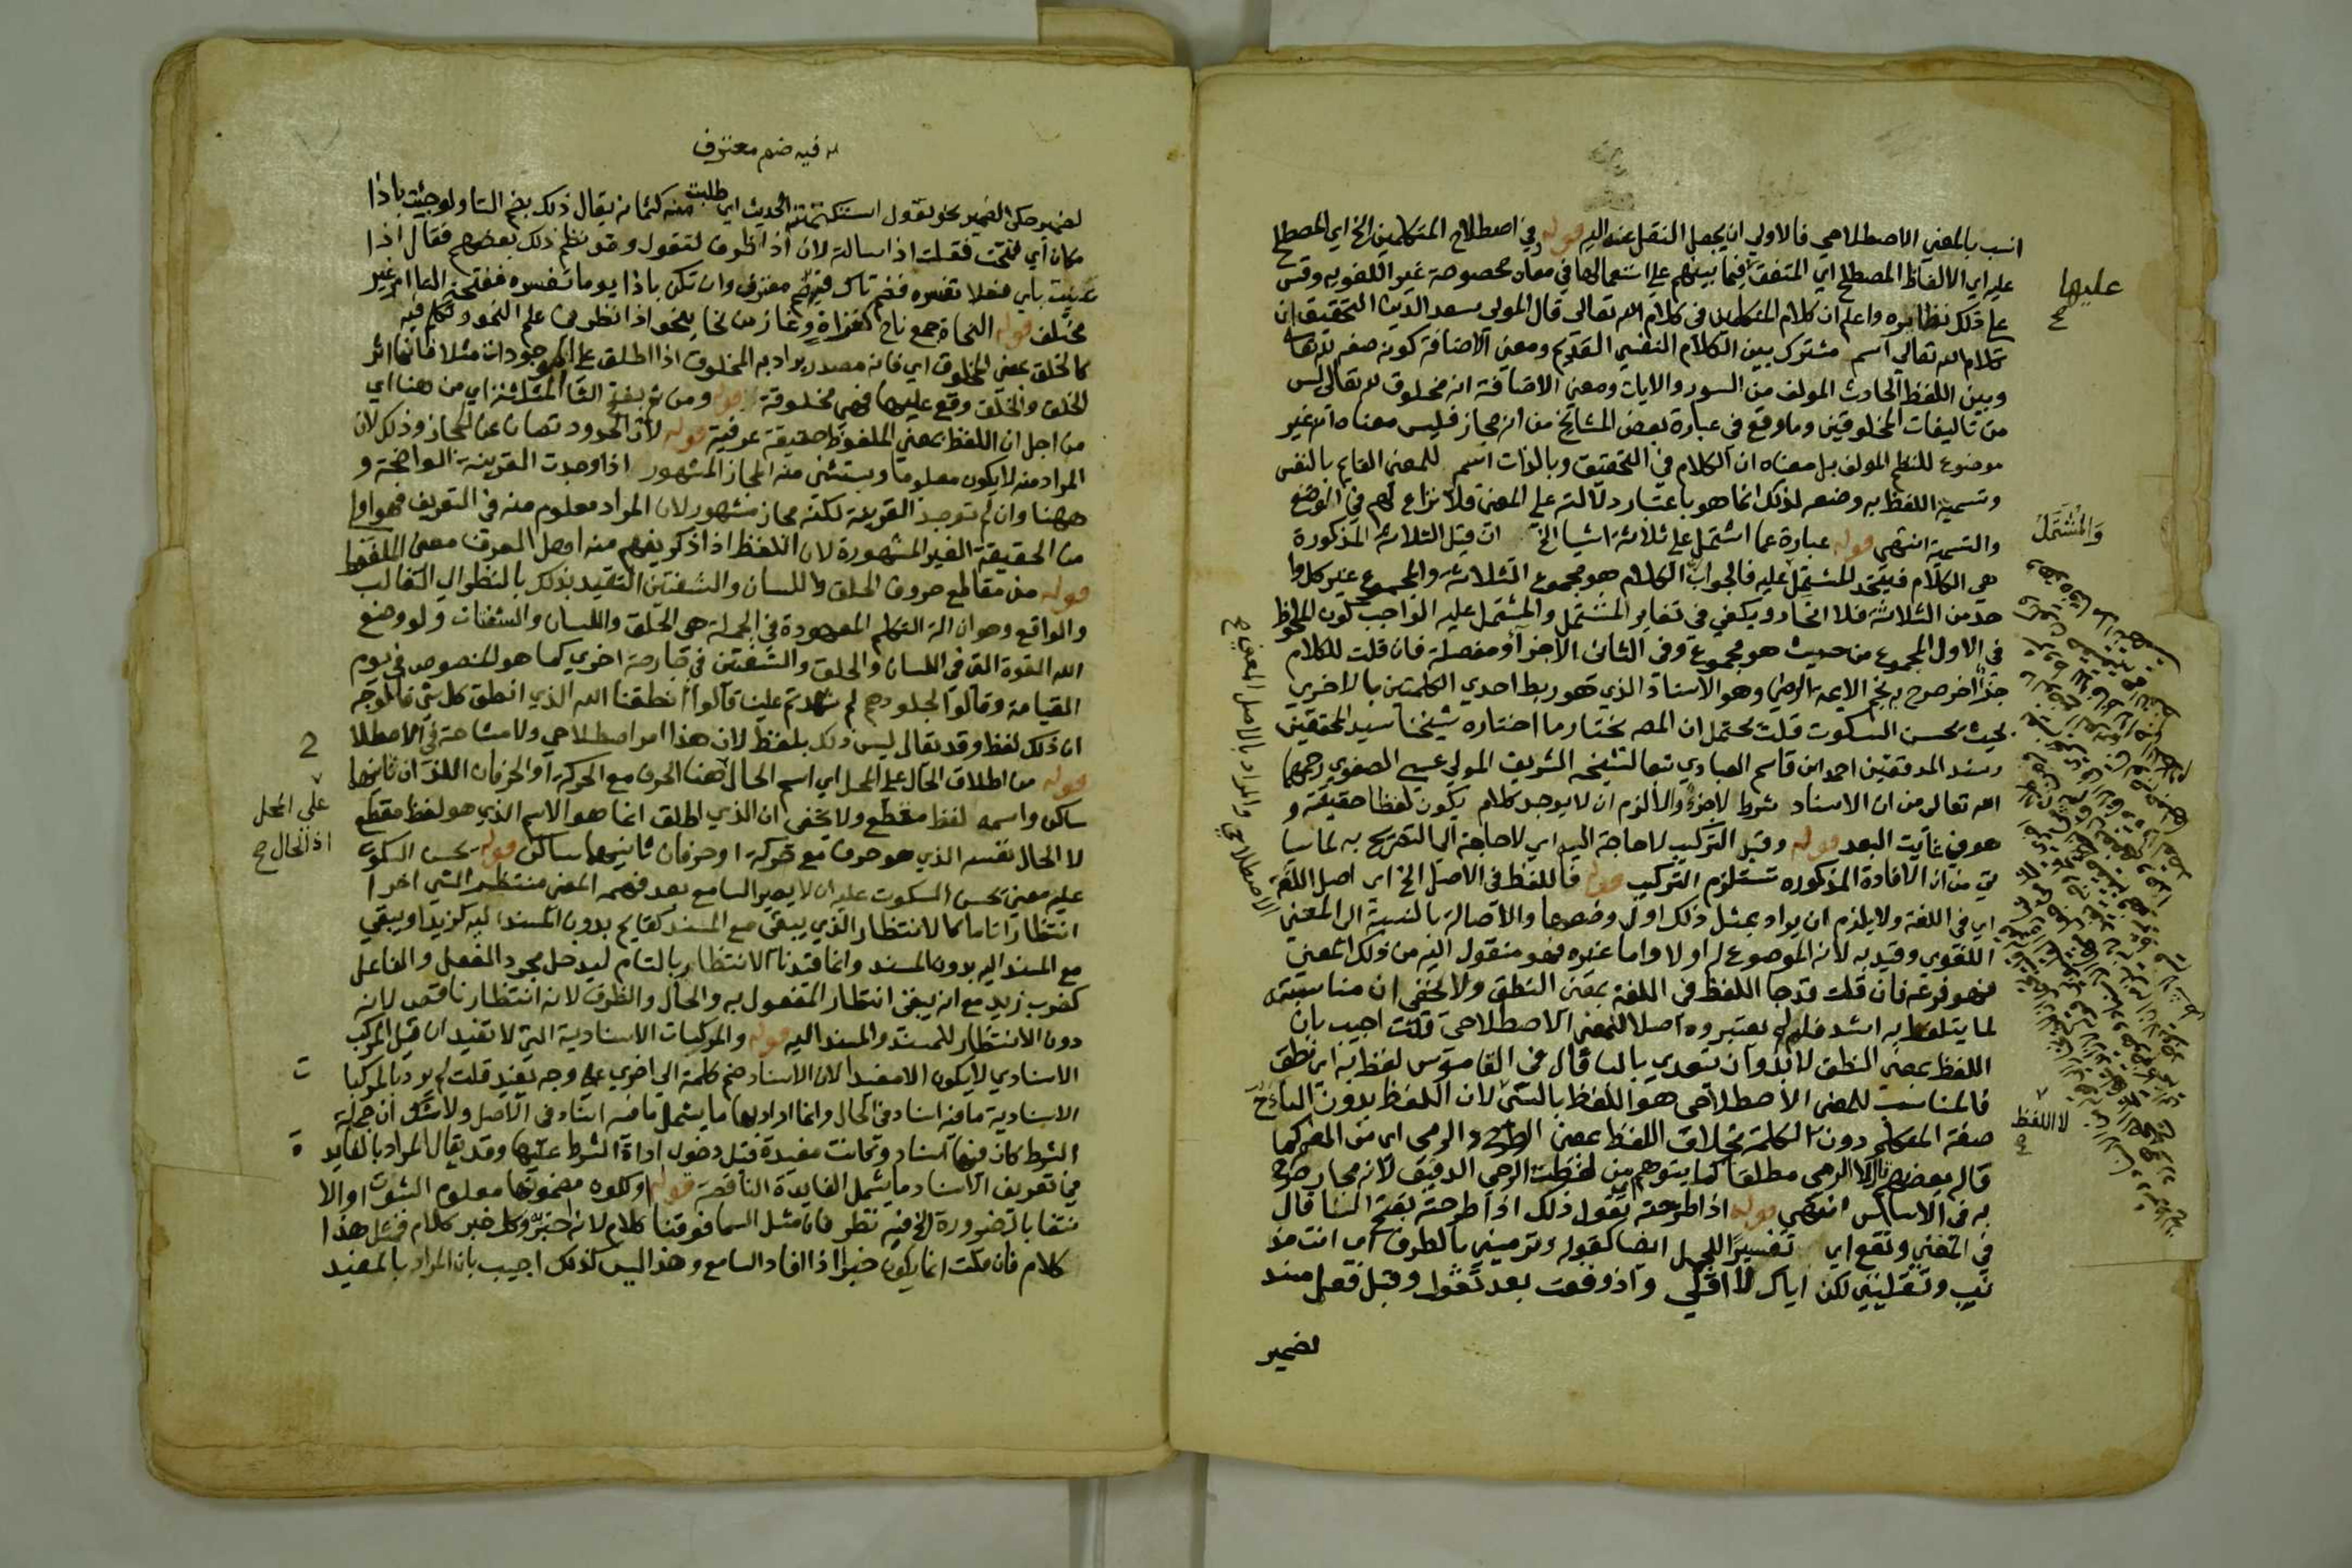 انسب بالمعني الاصطلاحي فالاولي ان يجعل النقل عنه اليه قوله في اصطلاح المتكلمين الخ اي المصطلح
عليه اي الالفاظ المصطلح اي المتفق فيما بينهم علي استعمالها في معان مخصوصة غير اللغويه وقس
علي ذلك نظايره واعلم ان كلام المتكلمين في كلام الله تعالي قال المولي سعد الدين التحقيق ان
كلام الله تعالي اسم مشترك بين الكلام النفسي القديم ومعني الاضافة كونه صفه له تعالي
وبين اللفظ الحادث المولف من السور والايات ومعني الاضافة انه مخلوق له تعالي ليس
من تاليفات المخلوقين وما وقع في عبارة بعض المشايخ من انه مجاز فليس معناه انه غير
موضوع للنظم المولف بل معناه ان الكلام في التحقيق وبالذات اسم للمعني القايم بالنفس
وتسمية اللفظ به وضعه لذلك انما هو باعتبار دلالته علي المعني فلا نزاع لهم في الوضع
والتسمية انتهي قوله عبارة عما اشتمل علي ثلاثة اشيا الخ ان قيل الثلاثه المذكورة
هي الكلام فيتحد المشتمل عليه فالجواب ان الكلام هو مجموع الثلاثه والمجموع غير كل وا
حد من الثلاثة فلا اتحاد ويكفي في تغاير المشتمل والمشتمل عليه الواجب كون الملحوظ
في الاول المجموع من حيث هو مجموع وفي الثاني الاجزا مفصلة فان قلت للكلام
جزا اخر صرح به نجم الايمة الرضي وهو الاسناد الذي هو ربط احدي الكلمتين بالاخري
بحيث يحسن السكوت قلت يحتمل ان المص يختار ما اختاره شيخنا سيد المحققين
وسند المدققين احمد ابن قاسم العبادي تبعا لشيخه الشريف المولي عيسي الصفوي رحمهما
الله تعالي من ان الاسناد شرط لا جزء والا لزم ان لا يوجد كلام يكون لفظا حقيقة و
هو في غايت البعد قوله وقيل التركيب لا حاجة اليه اي لا حاجة الي التصريح به لما سيا
تي من ان الافادة المذكوره تستلزم التركيب قوله فاللفظ في الاصل الخ اي اصل اللغة
اي في اللغة ولا يلزم ان يراد بمثل ذلك اول وضعها والاصالة بالنسبة الي المعني
اللغوي وقيد به لانه الموضوع له اولا واما غيره فهو منقول اليه من ذلك المعني
فهو فرعه فان قلت قد جا اللفظ في اللغة بمعني النطق ولا يخفي ان مناسبته
لما يتلفظ به اشد فلم لم يعتبروه اصلا للمعني الاصطلاحي قلت اجيب بان
اللفظ بمعني النطق لا بد وان يتعدي بالبا قال في القاموس لفظ به اي نطق
فالمناسب للمعني الاصطلاحي هو اللفظ بالشي لان اللفظ بدون الباء
صفة المتكلم دون الكلمة بخلاف اللفظ بمعني الطرح والرمي اي من الفم كما
قاله بعضهم لا الرمي مطلقا كما يتوهم من لفظت الرحي الدقيق لانه مجاز صرح
به في الاساس انتهي قوله اذا طرحته تقول ذلك اذا طرحته بفتح التا قال
في المغني وتقع اي تفسيرا للجمل ايضا كقوله وترمينني بالطرف اي انت مذ
نب وتقلينني لكن اياك لا اقلي واذ وقعت بعد تقول وقبل فعل مسند
لضمير
عليها
والمشتمل
لا اللفظ
والمراد بالاصل المعني الاصطلاحي
له فيه ضم معترف
لضمير حكي الضمير نحو تقول استكتمته الحديث اي طلبت منه كتمانه يقال ذلك بضم التا ولو جيت باذا
مكان اي فتحت فقلت اذا سالته لان اذا ظرف لتقول وقد نظم ذلك بعضهم فقال اذا
كنيت باي فعلا تفسره فضم تاك فيه ضم معترف وان تكن باذا يوما تفسره ففتحة التا امر غير
مختلف قوله النحاة جمع ناح كغزاة وغاز من نحا ينحو اذا نظر في علم النحو وتكلم فيه
كالخلق بمعني المخلوق اي فانه مصدر يراد به المخلوق اذا اطلق علي الموجودات مثلا فانها اثر
الخلق والخلق وقع عليها فهي مخلوقة قوله ومن ثم بفتح الثا المثلثة اي من هنا اي
من اجل ان اللفظ بمعني الملفوظ حقيقة عرفية قوله لان الحدود تصان عن المجاز وذلك لان
المراد منه لا يكون معلوما ويستثني منه المجاز المشهور اذا وجدت القرينة الواضحة و
ههنا وان لم توجد القرينة لكنه مجاز مشهور لان المراد معلوم منه في التعريف فهو اولي
من الحقيقة الغير المشهورة لان اللفظ اذا ذكر يفهم منه اهل العرف معني الملفوظ
قوله من مقاطع حروف الحلق واللسان والشفتين التقييد بذلك بالنظر الي الغالب
والواقع وهو ان الة التكلم المعهودة في الجملة هي الحلق واللسان والشفتان ولو وضع
الله القوة التي في اللسان والحلق والشفتين في جارحة اخري كما هو المنصوص في يوم
القيامة وقالوا لجلودهم لم شهدتم علينا قالوا انطقنا الله الذي انطق كل شي فالموجه
ان ذلك لفظ وقد يقال ليس ذلك بلفظ لان هذا امر اصطلاحي ولا مشاحة في الاصطلا
ح
قوله من اطلاق الحال علي المحل اي اسم الحال هنا الحرف مع الحركة او الحرفان اللذان ثانيهما
ساكن واسمه لفظ مقطع ولا يخفي ان الذي اطلق انما هو الاسم الذي هو لفظ مقطع
لا الحال نفسه الذي هو حرف مع حركة او حرفان ثانيهما ساكن قوله يحسن السكوت
عليه معني يحسن السكوت عليه ان لا يصير السامع بعد فهمه المعني منتظر الشي اخرا
انتظارا تاما كالانتظار الذي يبقي مع المسند كقايم بدون المسند اليه كزيد او يبقي
مع المسند اليه بدون المسند وانما قيدنا الانتظار بالتام ليدخل مجرد الفعل والفاعل
كضرب زيد مع انه يبقي انتظار المفعول به والحال والظرف لانه انتظار ناقص لانه
دون الانتظار للمسند والمسند اليه قوله والمركبات الاسنادية التي لا تفيد ان قيل المركب
الاسنادي لا يكون الا مفيدا لان الاسناد ضم كلمة الي اخري علي وجه يفيد قلت لم يرد بالمركبا
ت
الاسنادية ما فيه اسناد في الحال وانما اراد بها ما يشمل ما فيه اسناد في الاصل ولا شك ان جملة
الشرط كان فيها اسناد وكانت مفيدة قبل دخول اداة الشرط عليها وقد يقال المراد بالفايد
ة
في تعريف الاسناد ما يشمل الفايدة الناقصة قوله او لكون مضمونها معلوم الثبوت او الا
نتفا بالضرورة الخ فيه نظر فان مثل السما فوقنا كلام لانه خبر وكل خبر كلام فمثل هذا
كلام فان قلت انما يكون خبرا اذا افاد السامع وهذا ليس كذلك اجيب بان المراد بالمفيد
علي المحل
اذ الحال صح